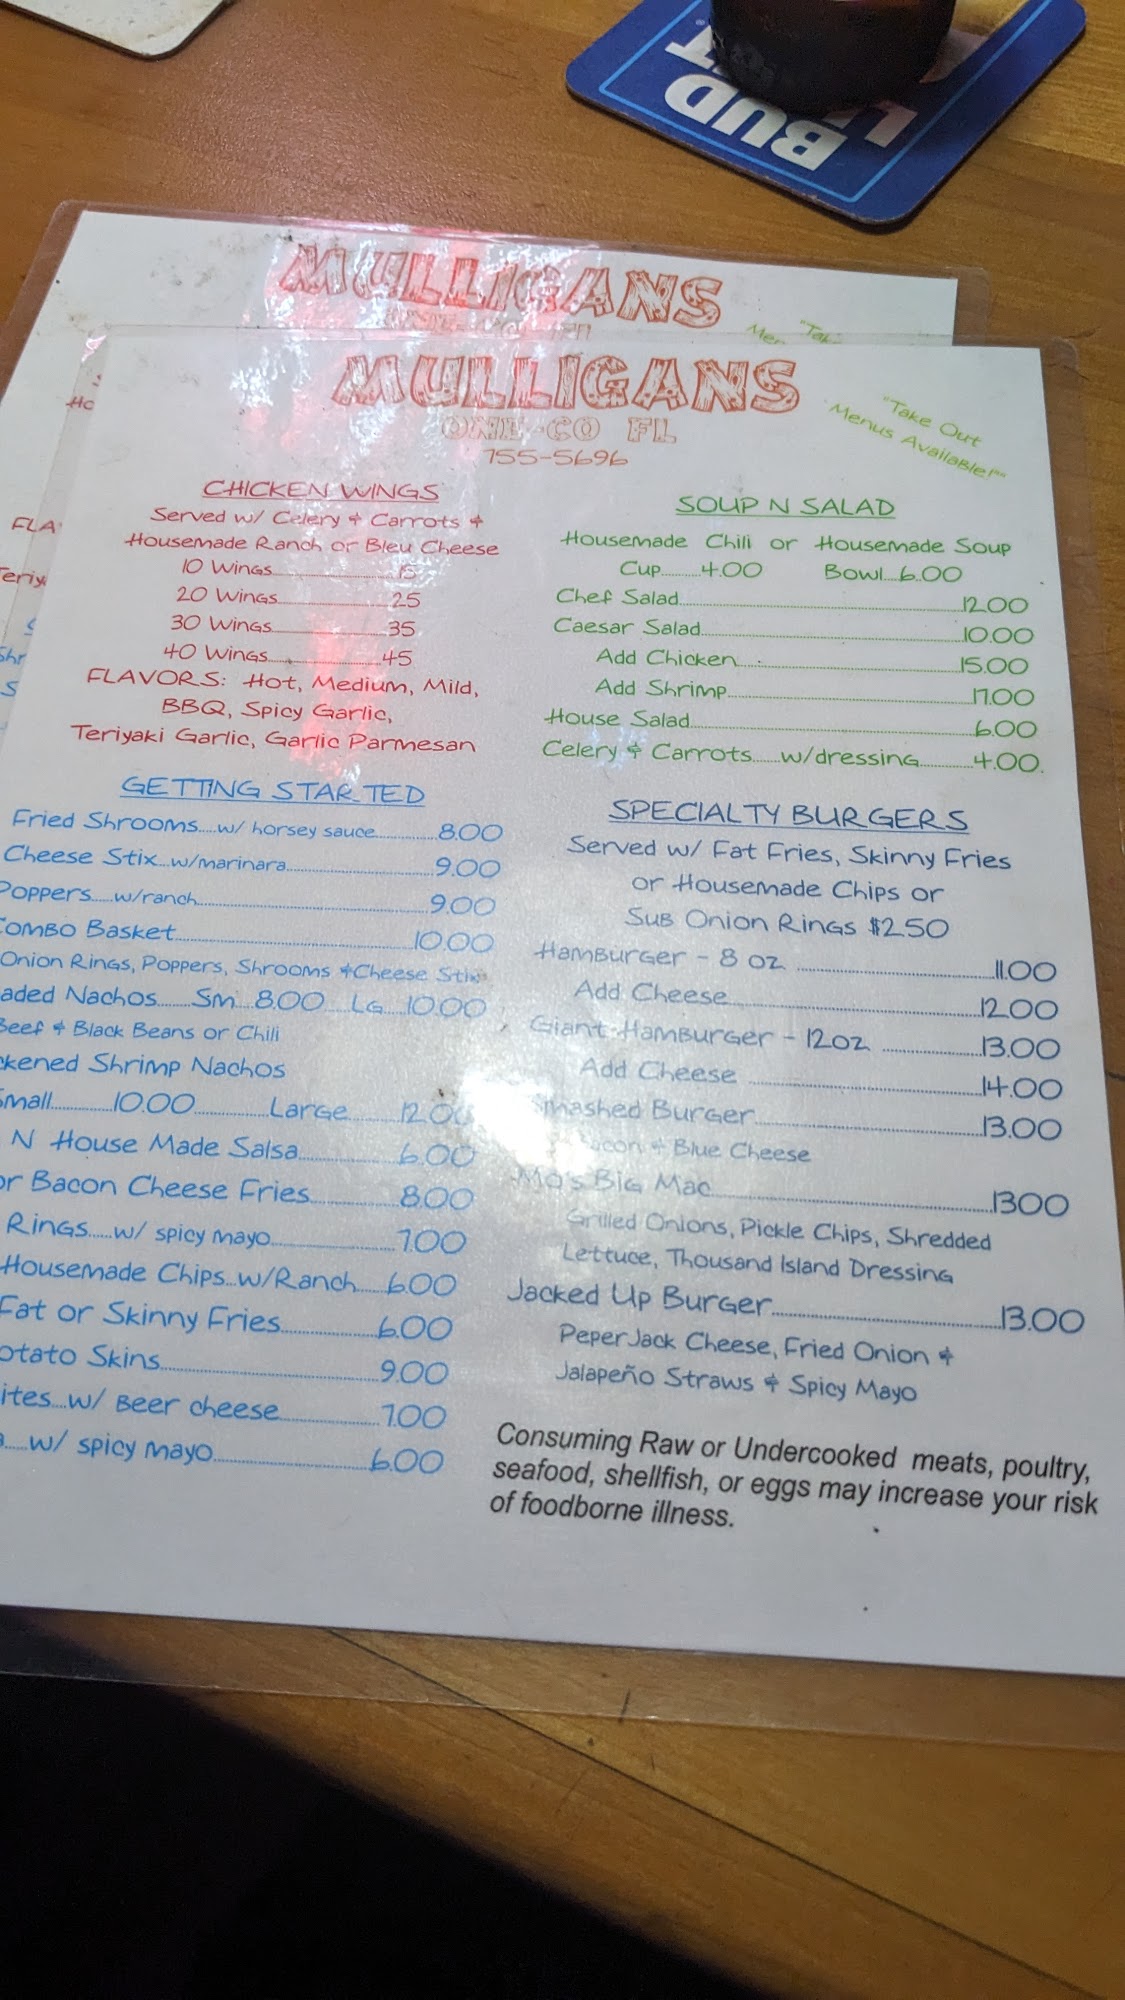 BUD
MULLIGANS
MULLIGANS
ONE-CO FL
755-5696
"Take Out
Menus Available!"
CHICKEN WINGS
Served w/ Celery & Carrots &
Housemade Ranch or Bleu Cheese
10 Wings 15
20 Wings 25
30 Wings 35
40 Wings 45
FLAVORS: Hot, Medium, Mild,
BBQ, Spicy Garlic,
Teriyaki Garlic, Garlic Parmesan
GETTING STARTED
Fried Shrooms w/ horsey sauce 8.00
Cheese Stix w/marinara 9.00
Poppers w/ranch 9.00
Combo Basket 10.00
Onion Rings, Poppers, Shrooms & Cheese Stix
aded Nachos Sm 8.00 LG 10.00
Beef & Black Beans or Chili
ckened Shrimp Nachos
Small 10.00 Large 12.00
N House Made Salsa 6.00
or Bacon Cheese Fries 8.00
Rings w/ spicy mayo 7.00
Housemade Chips w/Ranch 6.00
Fat or Skinny Fries 6.00
otato Skins 9.00
ites w/ Beer cheese 7.00
w/ spicy mayo 6.00
SOUP N SALAD
Housemade Chili or Housemade Soup
Cup 4.00 Bowl 6.00
Chef Salad 12.00
Caesar Salad 10.00
Add Chicken 15.00
Add Shrimp 17.00
House Salad 6.00
Celery & Carrots w/dressing 4.00
SPECIALTY BURGERS
Served w/ Fat Fries, Skinny Fries
or Housemade Chips or
Sub Onion Rings $2.50
Hamburger - 8 oz 11.00
Add Cheese 12.00
Giant Hamburger - 12oz 13.00
Add Cheese 14.00
Smashed Burger 13.00
Bacon & Blue Cheese
Mo's Big Mac 1300
Grilled Onions, Pickle Chips, Shredded
Lettuce, Thousand Island Dressing
Jacked Up Burger 13.00
PeperJack Cheese, Fried Onion &
Jalapeño Straws & Spicy Mayo
Consuming Raw or Undercooked meats, poultry,
seafood, shellfish, or eggs may increase your risk
of foodborne illness.